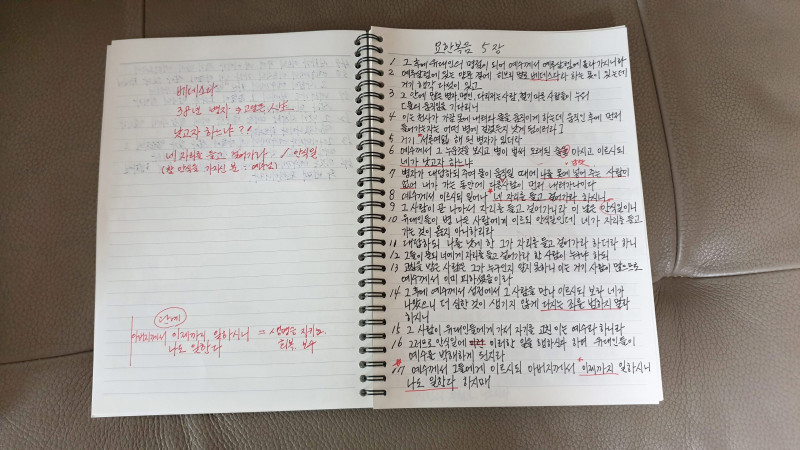 베데스다
38년 병자 → 고침은
낫고자 하느냐?!
네 자리를 들고 걸어가라 / 안식일
(참 안식을 가지신 분 : 예수님)
아버지께서 이제까지 일하시니 = 생명을
나도 일한다 회복.
요한복음 5장
1 그 후에 유대인의 명절이 되어 예수께서 예루살렘에 올라가시니라
2 예루살렘에 있는 양문 곁에 히브리 말로 베데스다라 하는 못이 있는데
거기 행각 다섯이 있고
3 그 안에 많은 병자, 맹인, 다리저는사람, 혈기마른 사람들이 누워
물의 움직임을 기다리니
4 이는 천사가 가끔 못에 내려와 물을 움직이게 하는데 움직인 후에 먼저
들어가는자는 어떤 병에 걸렸든지 낫게 됨이러라
5 거기 서른여덟 해 된 병자가 있더라
6 예수께서 그 누운것을 보시고 병이 벌써 오래된 줄 아시고 이르시되
네가 낫고자 하느냐
7 병자가 대답하되 주여 물이 움직일 때에 나를 못에 넣어 주는 사람이
없어 내가 가는 동안에 다른사람이 먼저 내려가나이다
8 예수께서 이르시되 일어나 네 자리를 들고 걸어가라 하시니
9 그 사람이 곧 나아서 자리를 들고 걸어가니라 이 날은 안식일이니
10 유대인들이 병 나은 사람에게 이르되 안식일인데 네가 자리를 들고
가는 것이 옳지 아니하니라
11 대답하되 나를 낫게 한 그가 자리를 들고 걸어가라 하더라 하니
12 그들이 묻되 너에게 자리를 들고 걸어가라 한 사람이 누구냐 하되
13 고침을 받은 사람은 그가 누구인지 알지 못하니 이는 거기 사람이 많으므로
예수께서 이미 피하셨음이라
14 그 후에 예수께서 성전에서 그 사람을 만나 이르시되 보라 네가
나았으니 더 심한 것이 생기지 않게 다시는 죄를 범하지 말라
하시니
15 그 사람이 유대인들에게 가서 자기를 고친 이는 예수라 하니라
16 그러므로 안식일에 이러한 일을 행하신다 하여 유대인들이
예수를 박해하게 된지라
17 예수께서 그들에게 이르시되 아버지께서 이제까지 일하시니
나도 일한다 하시매